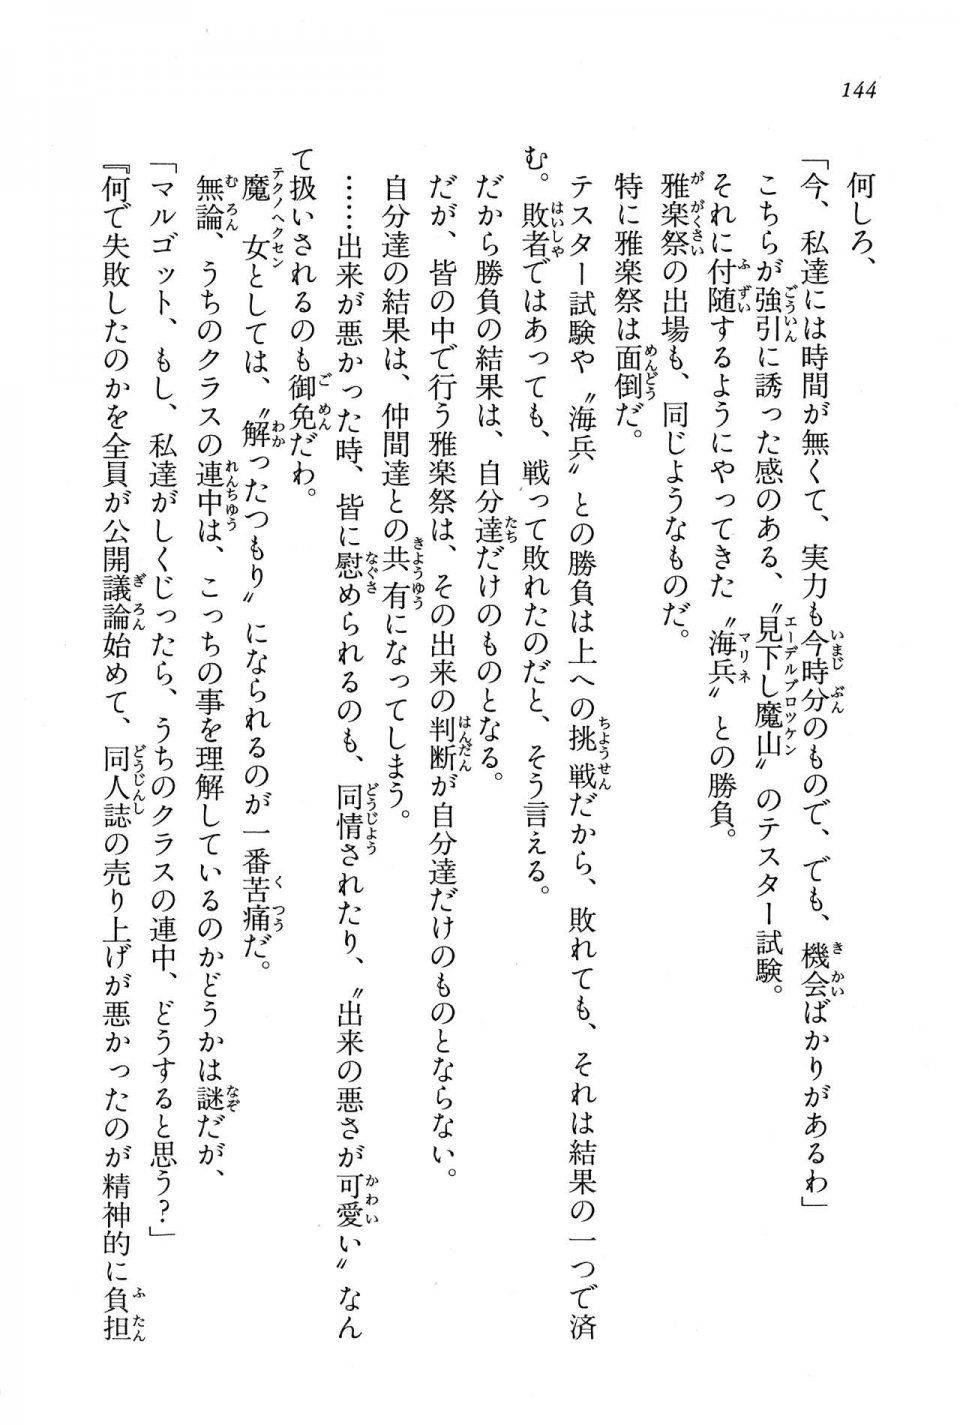 144
何しろ、
「今、私達には時間が無くて、実力も今時分のもので、でも、機会ばかりがあるわ」
こちらが強引に誘った感のある、〝見下し魔山〟のテスター試験。
それに付随するようにやってきた〝海兵〟との勝負。
雅楽祭の出場も、同じようなものだ。
特に雅楽祭は面倒だ。
テスター試験や〝海兵〟との勝負は上への挑戦だから、敗れても、それは結果の一つで済
む。敗者ではあっても、戦って敗れたのだと、そう言える。
だから勝負の結果は、自分達だけのものとなる。
だが、皆の中で行う雅楽祭は、その出来の判断が自分達だけのものとならない。
自分達の結果は、仲間達との共有になってしまう。
……出来が悪かった時、皆に慰められるのも、同情されたり、〝出来の悪さが可愛い〟なん
て扱いされるのも御免だわ。
魔女としては、〝解ったつもり〟になられるのが一番苦痛だ。
無論、うちのクラスの連中は、こっちの事を理解しているのかどうかは謎だが、
「マルゴット、もし、私達がしくじったら、うちのクラスの連中、どうすると思う？」
『何で失敗したのかを全員が公開議論始めて、同人誌の売り上げが悪かったのが精神的に負担